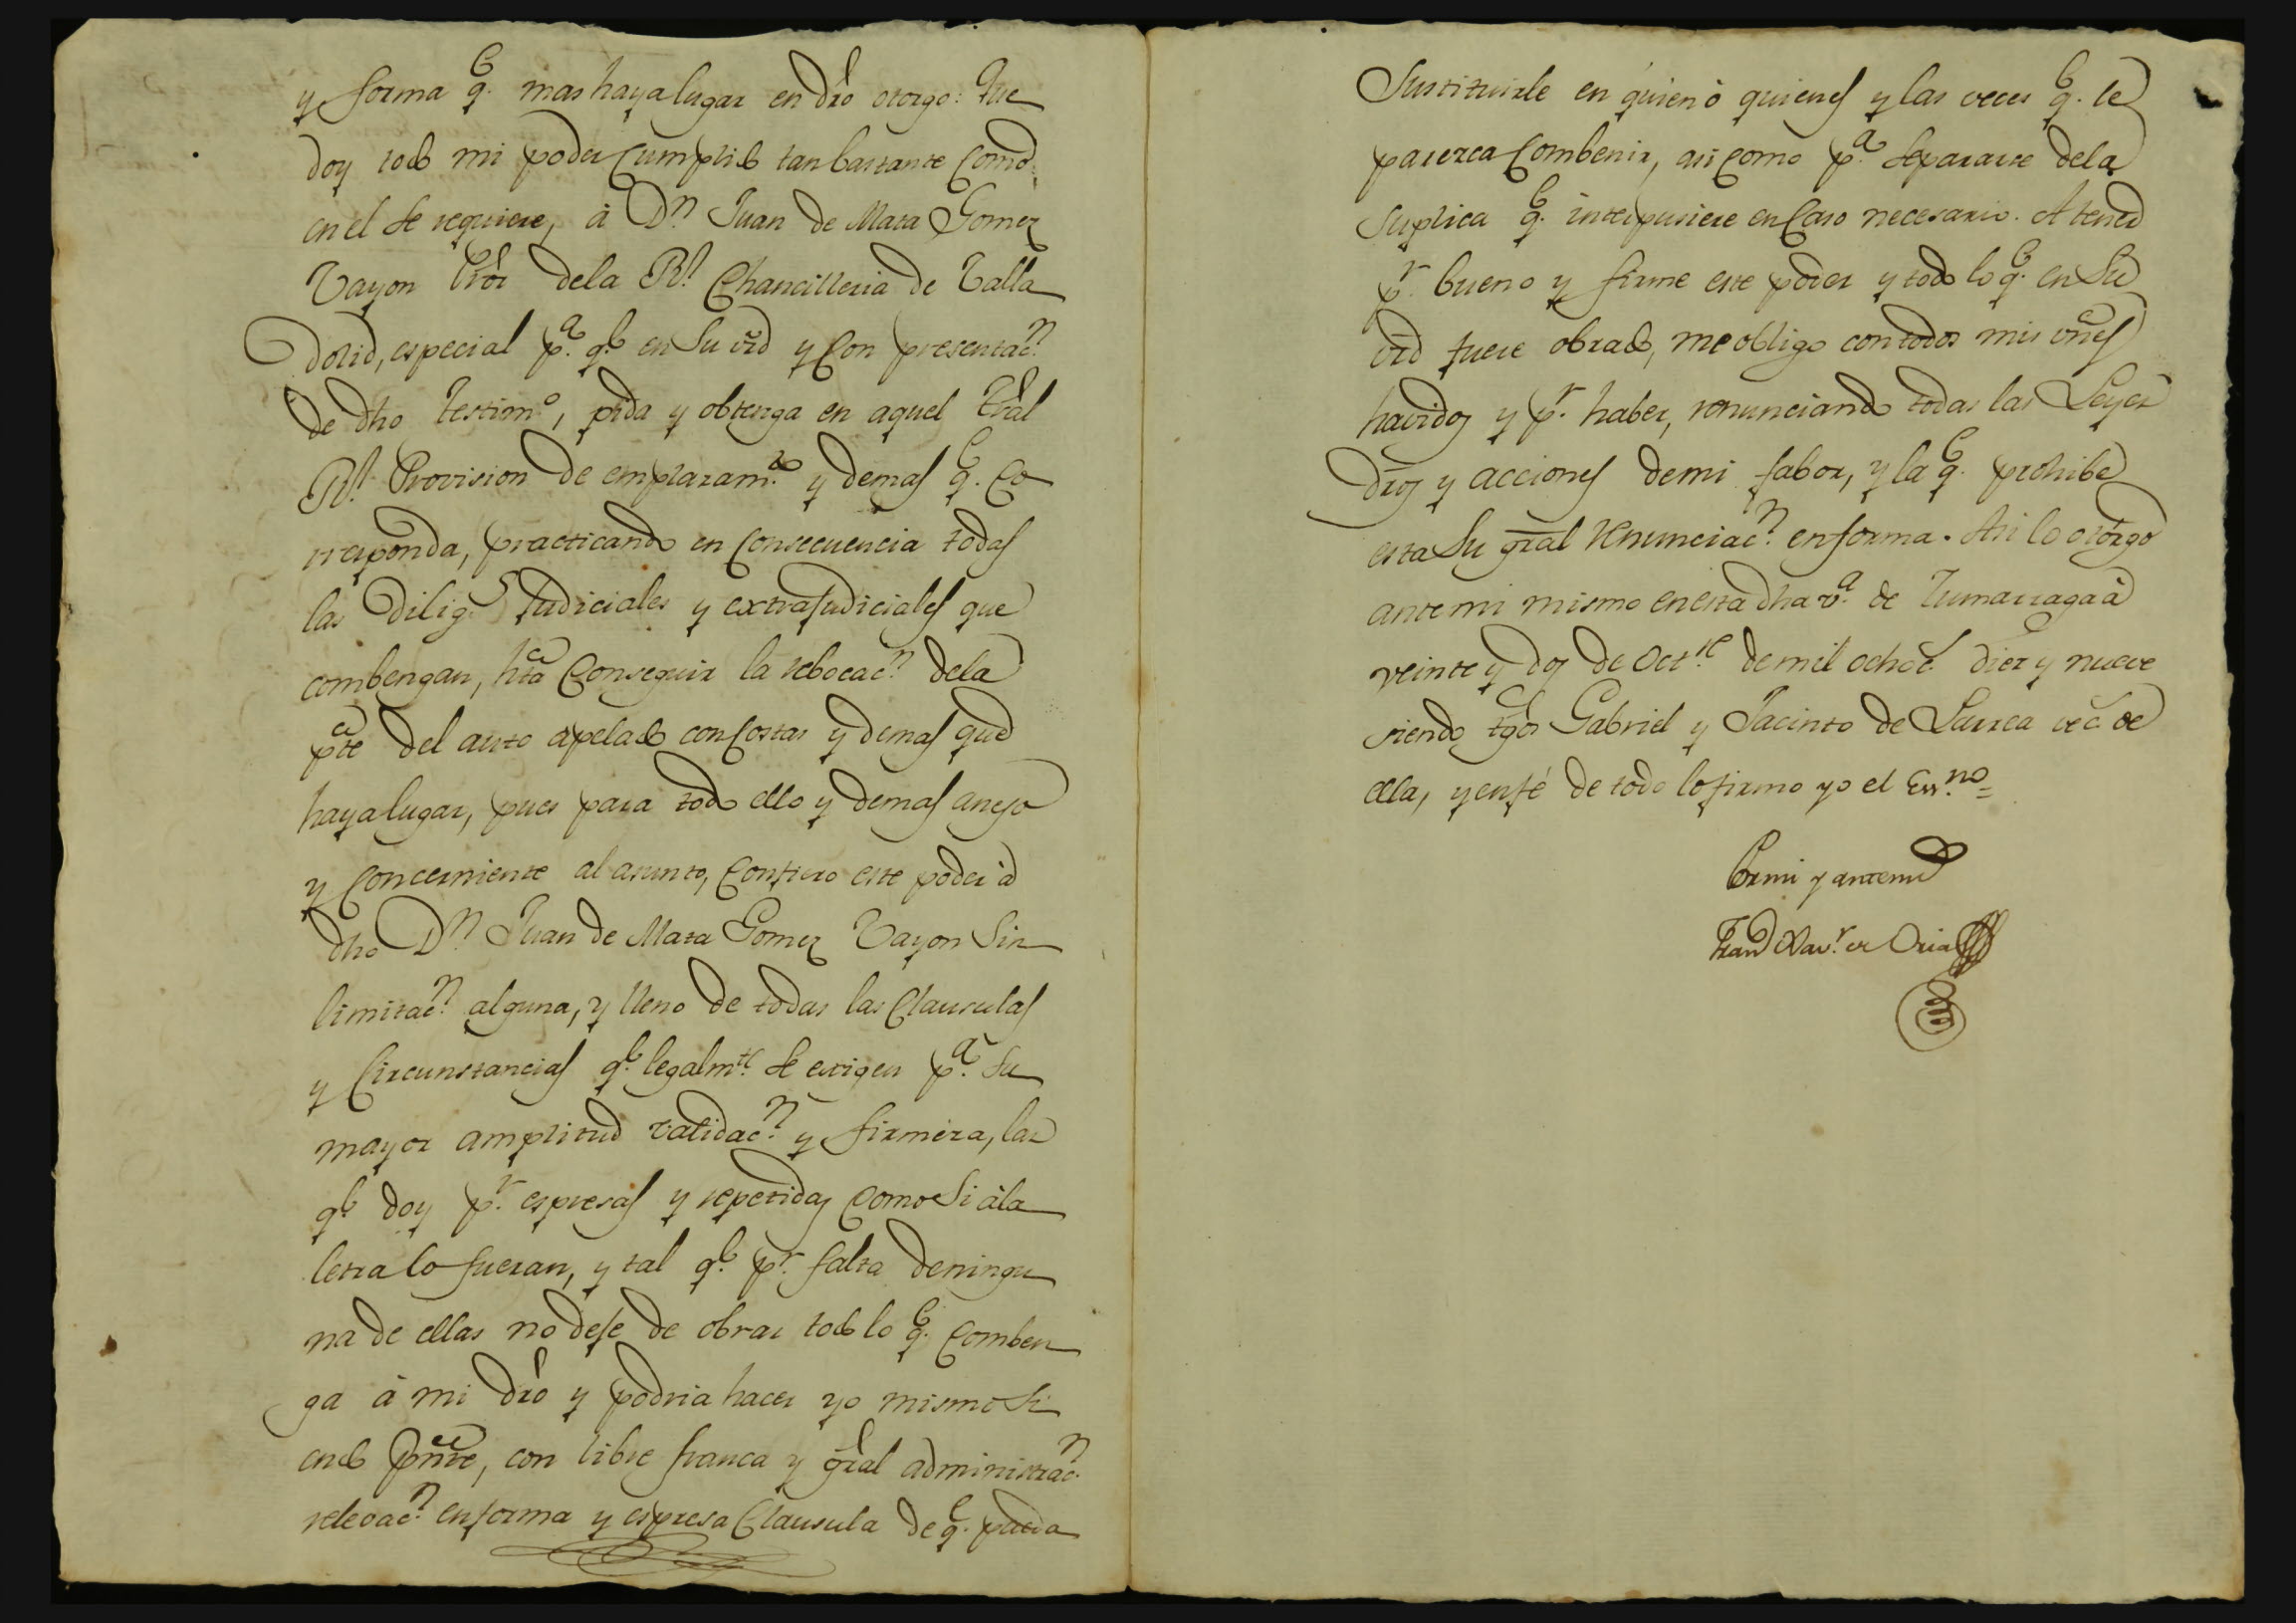 y forma q.e mas haya lugar en dro otorgo: Que
doy todo mi poder Cumplido tan bastante Como
en el se requiere, à D.n Juan de Mata Gomez
Vayon Pror dela R.l Chancilleria de Valla
dolid, especial p.a q.e en Su vrd y Con presentac.n
de dho testim.o, pida y obtenga en aquel Tral
R.l Provision de emplazam.to y demas q.e Co
rresponda, practicando en Consecuencia todas
las Dilig.s Judiciales y extrajudiciales que
combengan, hta Conseguir la rebocac.n dela
pte del auto apelado con Costas y demas que
haya lugar, pues para todo ello y demas anejo
y Concerniente al asunto, Confiero este poder à
dho D.n Juan de Mata Gomez Vayon Sin
limitac.n alguna, y lleno de todas las Clausulas
y Circunstancias q.e legalm.te se exigen p.a Su
mayor amplitud validac.n y firmeza, las
q.e doy p.r espresas y repetidas Como Si à la
letra lo fueran, y tal q.e p.r falta de ningu
na de ellas no deje de obrar todo lo q.e Comben
ga à mi dro y podria hacer yo mismo Si
endo pnte, con libre franca y gral administrac.n
relevac.n en forma y espresa Clausula de q.e pueda
Sustituirle en quien ò quienes y las veces q.e le
parezca Combenir, asi Como p.a Separarse dela
Suplica q.e interpusiere en Caso necesario. A tener
p.r bueno y firme este poder y todo lo q.e en Su
vrd fuere obrado, me obligo con todos mis vnes
havidos y p.r haber, renunciando todas las Leyes
dros y acciones de mi fabor, y la q.e prohibe
esta Su gral renunciac.n en forma. Asi lo otorgo
ante mi mismo en esta dha v.a de Zumarraga à
veinte y dos de Oct.re de mil ochoc.s diez y nueve
siendo tgos Gabriel y Jacinto de Larrea vec.s de
ella, y en fé de todo lo firmo yo el Ess.no =
Por mi y ante mi
Fran.co Xav.r de Oria